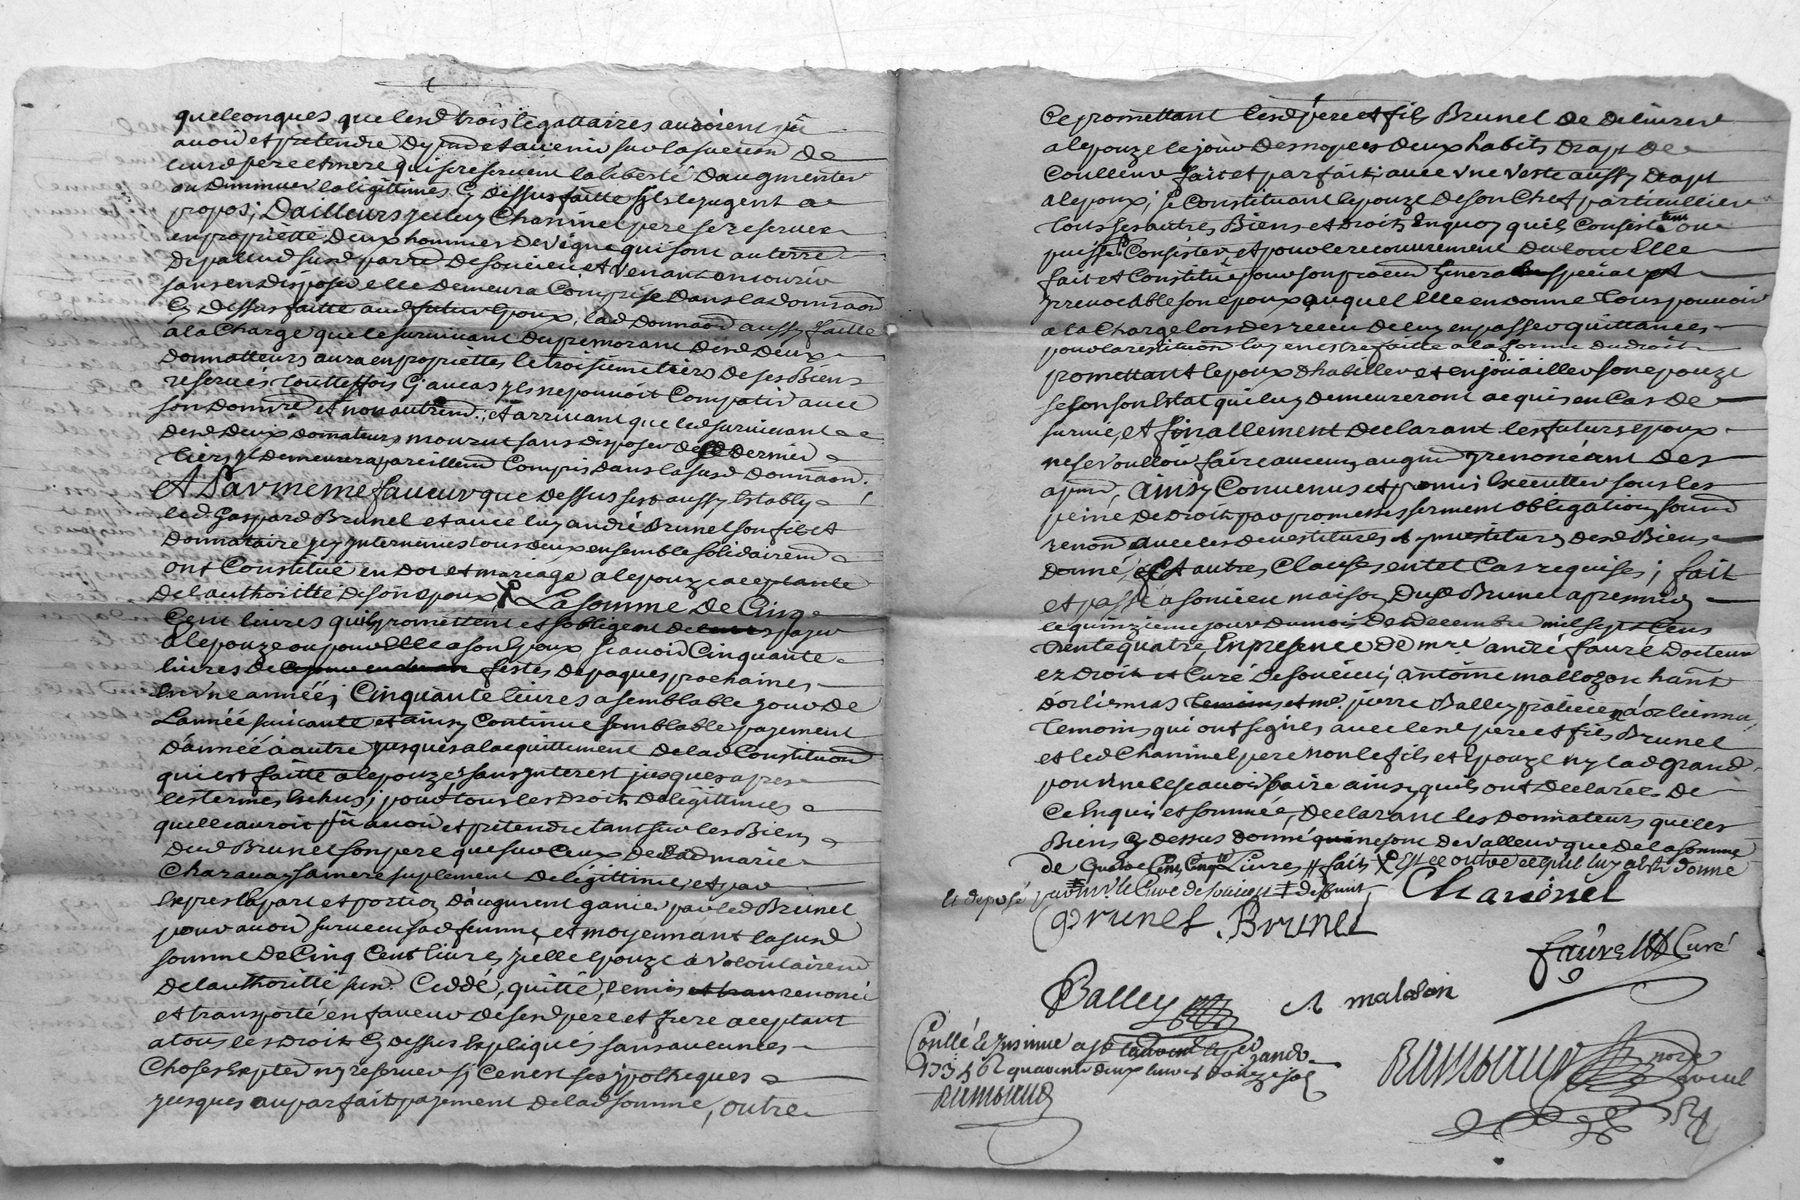 quelconques que lesd trois legattaires auroient pû
avoir et pretendre du pnd et advenir sur la sucession de
leursd pere et mere qui se reservent la liberté d'augmenter
ou diminuer la legittimes Cy dessus faitte s'ils le jugent a
propos; D'ailleurs led Chaninel pere se reserve
en proprietté deux hommes de vigne qui sont au terre
de susd parr. de soucieu et venant a mourir
sans en disposer elle demeura Comprise dans la donnaon
Cy dessus faitte aud futur Epoux, lad donnaon aussy faitte
a la Charge que le survivant du premorant desd deux
donnatteurs aura en propriettes le troisieme tiers de ses Biens
reservés touttesfois Cy au cas ils ne pouvoit Compatir avec
son donnre et non autremt; et arrivant que led survivant
desd deux donnateurs mourut sans disposer de dernier
tiers il demeurera pareillemt Compris dans la susd donnaon.
A La meme faveur que dessus sest aussy Estably
led. Gaspard Brunel et avec luy andré Brunel son fils et
donnataire Lesquels tous deux ensemble solidairemt
ont Constitué en Dot et mariage a lepouze aceptante
de l'authoritte de son epoux La somme De Cinq
Cent livres quils promettent et s'obligent payer
a lepouze ou pour elle a son Epoux, scavoir Cinquante
livres de festes de paques prochaines
en une année, Cinquante livres a semblable jour de
L'année suivante et ainsy Continue semblable payement
d'année à autre jusques a lacquittement de lad Constituon
qui est faitte a lepouze sans interest jusques apres
les termes Echus; pour tous les droits de legittimes
quelle auroit pû avoir et pretendre tant sur les Biens
dud Brunel son pere que sur Ceux de lad marie
Charavay sa mere suplement de legittime, et par
Expres la part et portion d'augment ganié par led Brunel
pour avoir survecu sad femme, et moyennant la susd
somme de Cinq Cent livres, jcelle Epouze a volontairemt
de l'authoritté susd. Ceddé, quitté, remis renoncé
et transporté en faveur de sesd pere et frere aceptant
a tous les droits Cy dessus Expliqués sans aucunes
Choses Excpter ny reserver si Ce n'est ses ypotheques
jusques au parfait payement de lad somme, outre
Ce promettant lesd pere et fils Brunel de delivrer
a lepouze le jour des nopces deux habits drapt de
Coulleur fait et parfait, avec une veste aussy drapt
a lepoux; se Constituant lepouze de son Chef particullier
tous ses autres Biens et droits En quoy quils Consistent ou
puisse Consister, et pour le recouvrement du tout Elle
fait et Constitué pour son procur general special et
yrrevocable son epoux auquel Elle en donne tous pouvoir
a la Charge lors des receu de luy en passer quittances
pour la restitution luy en estre faitte a la forme du droit
promettant lepoux d'habiller et enjoüailler son epouze
selon son Estat qui luy demeureront acquis en Cas de
survie, et finallement declarant les futurs epoux
ne se voulloir faire aucun augmt yrenonceant des
a pnt, ainsy Convenus et promis Executter sous les
peine de droit par promesses serment obligations soumd
renond avec les devestitures et jnvestitures desd Biens
donné, et autres Clauses en tel Cas requises; fait
et passé a soucieu maison dud Brunel apres midy
le quinzieme jour du mois de decembre mil sept Cens
trente quatre En presence de mre andré faure docteur
ez droit et Curé de soucieu, antoine mallozon habt
d'orlienas et me. pierre Balley praticien a d'orlienas,
temoins qui ont signés avec lesd pere et fils Brunel
et led Chaninel pere non le fils et Epouze ny lad grand
pour ne le scavoir faire ainsy quils ont declarée de
Ce Enquis et sommée, declarant les donnateurs que les
Biens Cy dessus donné ne sont de valleur que de la somme
de quatre Cens Cinqte Livres // fait, X Est ce outre ce quil luy a esté donné
et deposé par mr. le Curé de soucieu deffunt
Chaninel
Brunel. Brunel
faure Curé
Balley
A malosон
Conllé & Insinué a st
1735
quarante deux livres douze sols
Rimoud
Rimoud
nore
royal